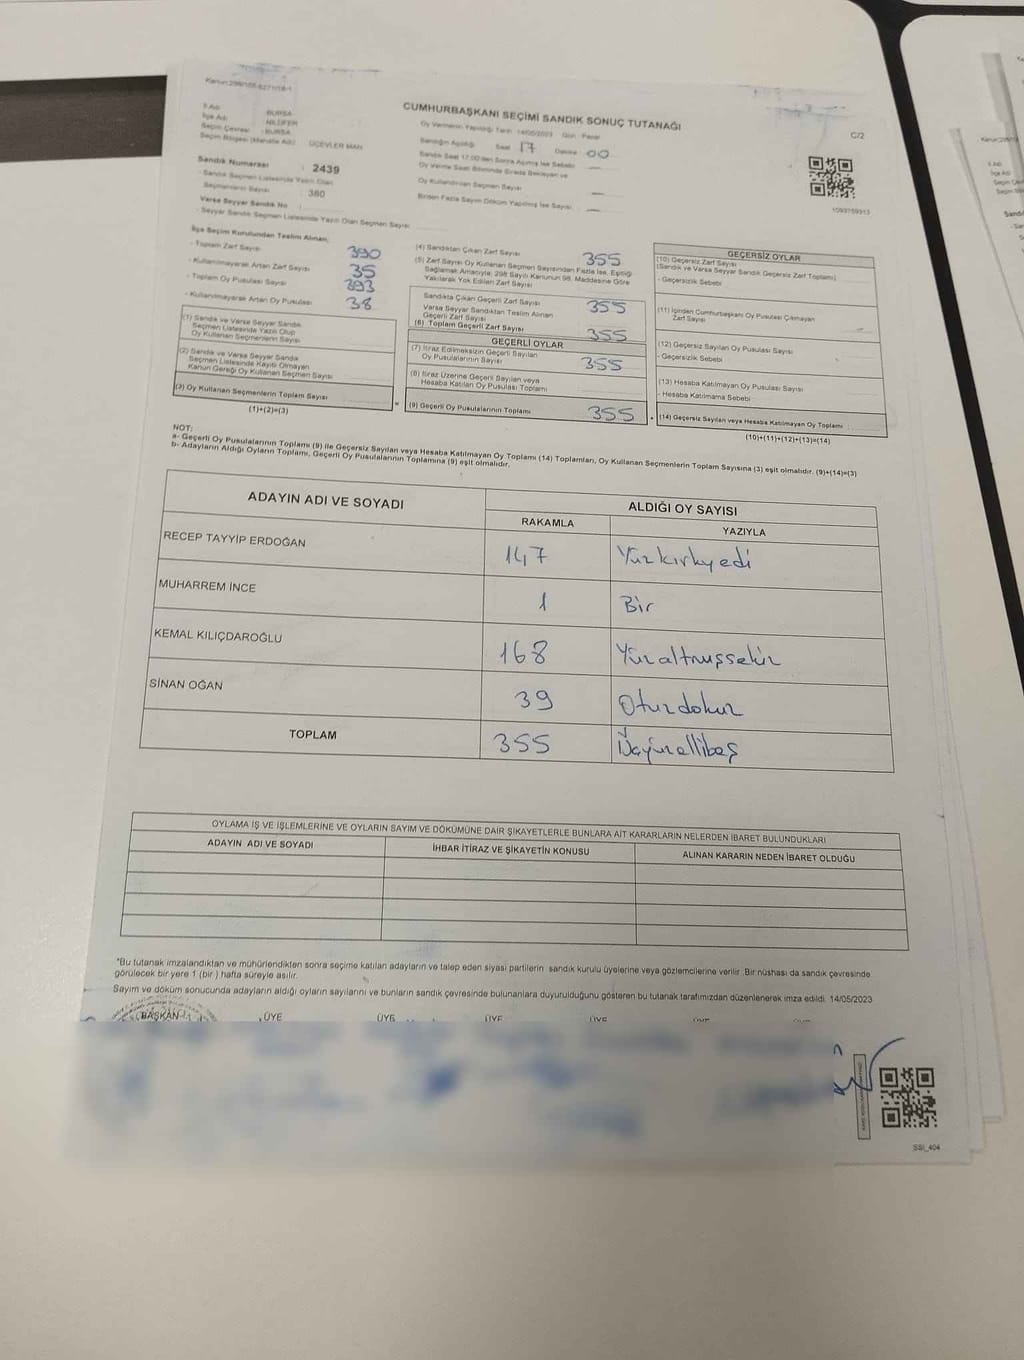 Kanun:298/105-6271/18-1
CUMHURBAŞKANI SEÇİMİ SANDIK SONUÇ TUTANAĞI
C/2
İl Adı : BURSA
İlçe Adı : NİLÜFER
Seçim Çevresi : BURSA
Seçim Bölgesi (Mahalle Adı) : ÜÇEVLER MAH
Oy Vermenin Yapıldığı Tarih : 14/05/2023 Gün : Pazar
Sandığın Açıldığı Saat 17 Dakika 00
Sandık Saat 17.00'den Sonra Açılmış İse Sebebi
Oy Verme Saat Bitiminde Sırada Bekleyen ve
Oy Kullandırılan Seçmen Sayısı
Birden Fazla Sayım Döküm Yapılmış İse Sayısı
Sandık Numarası : 2439
- Sandık Seçmen Listesinde Yazılı Olan
Seçmenlerin Sayısı : 380
Varsa Seyyar Sandık No :
- Seyyar Sandık Seçmen Listesinde Yazılı Olan Seçmen Sayısı :
1093759313
İlçe Seçim Kurulundan Teslim Alınan;
- Toplam Zarf Sayısı 390
- Kullanılmayarak Artan Zarf Sayısı 35
- Toplam Oy Pusulası Sayısı 393
- Kullanılmayarak Artan Oy Pusulası 38
(1) Sandık ve Varsa Seyyar Sandık
Seçmen Listesinde Yazılı Olup
Oy Kullanan Seçmenlerin Sayısı
(2) Sandık ve Varsa Seyyar Sandık
Seçmen Listesinde Kayıtlı Olmayan
Kanun Gereği Oy Kullanan Seçmen Sayısı
(3) Oy Kullanan Seçmenlerin Toplam Sayısı
(1)+(2)=(3)
(4) Sandıktan Çıkan Zarf Sayısı 355
(5) Zarf Sayısı Oy Kullanan Seçmen Sayısından Fazla İse, Eşitliği
Sağlamak Amacıyla; 298 Sayılı Kanunun 98. Maddesine Göre
Yakılarak Yok Edilen Zarf Sayısı
Sandıkta Çıkan Geçerli Zarf Sayısı 355
Varsa Seyyar Sandıktan Teslim Alınan
Geçerli Zarf Sayısı
(6) Toplam Geçerli Zarf Sayısı 355
GEÇERLİ OYLAR
(7) İtiraz Edilmeksizin Geçerli Sayılan
Oy Pusulalarının Sayısı 355
(8) İtiraz Üzerine Geçerli Sayılan veya
Hesaba Katılan Oy Pusulası Toplamı
(9) Geçerli Oy Pusulalarının Toplamı 355
GEÇERSİZ OYLAR
(10) Geçersiz Zarf Sayısı
(Sandık ve Varsa Seyyar Sandık Geçersiz Zarf Toplamı)
- Geçersizlik Sebebi
(11) İçinden Cumhurbaşkanı Oy Pusulası Çıkmayan
Zarf Sayısı
(12) Geçersiz Sayılan Oy Pusulası Sayısı
- Geçersizlik Sebebi
(13) Hesaba Katılmayan Oy Pusulası Sayısı
- Hesaba Katılmama Sebebi
(14) Geçersiz Sayılan veya Hesaba Katılmayan Oy Toplamı
(10)+(11)+(12)+(13)=(14)
NOT:
a- Geçerli Oy Pusulalarının Toplamı (9) ile Geçersiz Sayılan veya Hesaba Katılmayan Oy Toplamı (14) Toplamları, Oy Kullanan Seçmenlerin Toplam Sayısına (3) eşit olmalıdır. (9)+(14)=(3)
b- Adayların Aldığı Oyların Toplamı, Geçerli Oy Pusulalarının Toplamına (9) eşit olmalıdır.
ADAYIN ADI VE SOYADI
ALDIĞI OY SAYISI
RAKAMLA YAZIYLA
RECEP TAYYİP ERDOĞAN 147 Yüzkırkyedi
MUHARREM İNCE 1 Bir
KEMAL KILIÇDAROĞLU 168 Yüzaltmışsekiz
SİNAN OĞAN 39 Otuzdokuz
TOPLAM 355 Üçyüzellibeş
OYLAMA İŞ VE İŞLEMLERİNE VE OYLARIN SAYIM VE DÖKÜMÜNE DAİR ŞİKAYETLERLE BUNLARA AİT KARARLARIN NELERDEN İBARET BULUNDUKLARI
ADAYIN ADI VE SOYADI İHBAR İTİRAZ VE ŞİKAYETİN KONUSU ALINAN KARARIN NEDEN İBARET OLDUĞU
*Bu tutanak imzalandıktan ve mühürlendikten sonra seçime katılan adayların ve talep eden siyasi partilerin sandık kurulu üyelerine veya gözlemcilerine verilir. Bir nüshası da sandık çevresinde
görülecek bir yere 1 (bir) hafta süreyle asılır.
Sayım ve döküm sonucunda adayların aldığı oyların sayılarını ve bunların sandık çevresinde bulunanlara duyurulduğunu gösteren bu tutanak tarafımızdan düzenlenerek imza edildi. 14/05/2023
BAŞKAN ÜYE ÜYE ÜYE ÜYE ÜYE
SSI_404